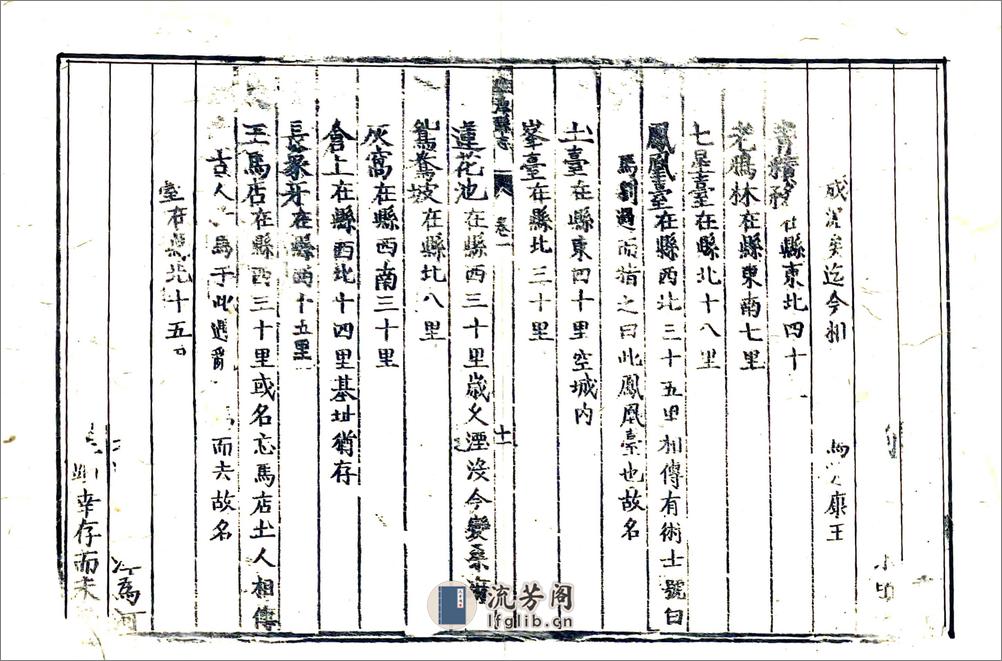 小
成 矣迄今相 馬 康王
青積務在縣東北四十
老鴉林在縣東南七里
七星臺在縣北十八里
鳳凰臺在縣西北三十五里相傳有術士號曰
馬劉過而指之曰此鳳凰臺也故名
土臺在縣東四十里空城內
峯臺在縣北三十里
縣志 卷一 十一
蓮花池在縣西三十里歲久湮沒今變桑
鴛鴦坡在縣北八里
灰窩在縣西南三十里
倉上在縣西北十四里基址猶存
長豪牙在縣西十五里
王馬店在縣西三十里或名忘馬店土人相傳
古人 馬于此遇 而去故名
臺在 北十五
為河
幸存而未
流芳阁
lfglib.cn